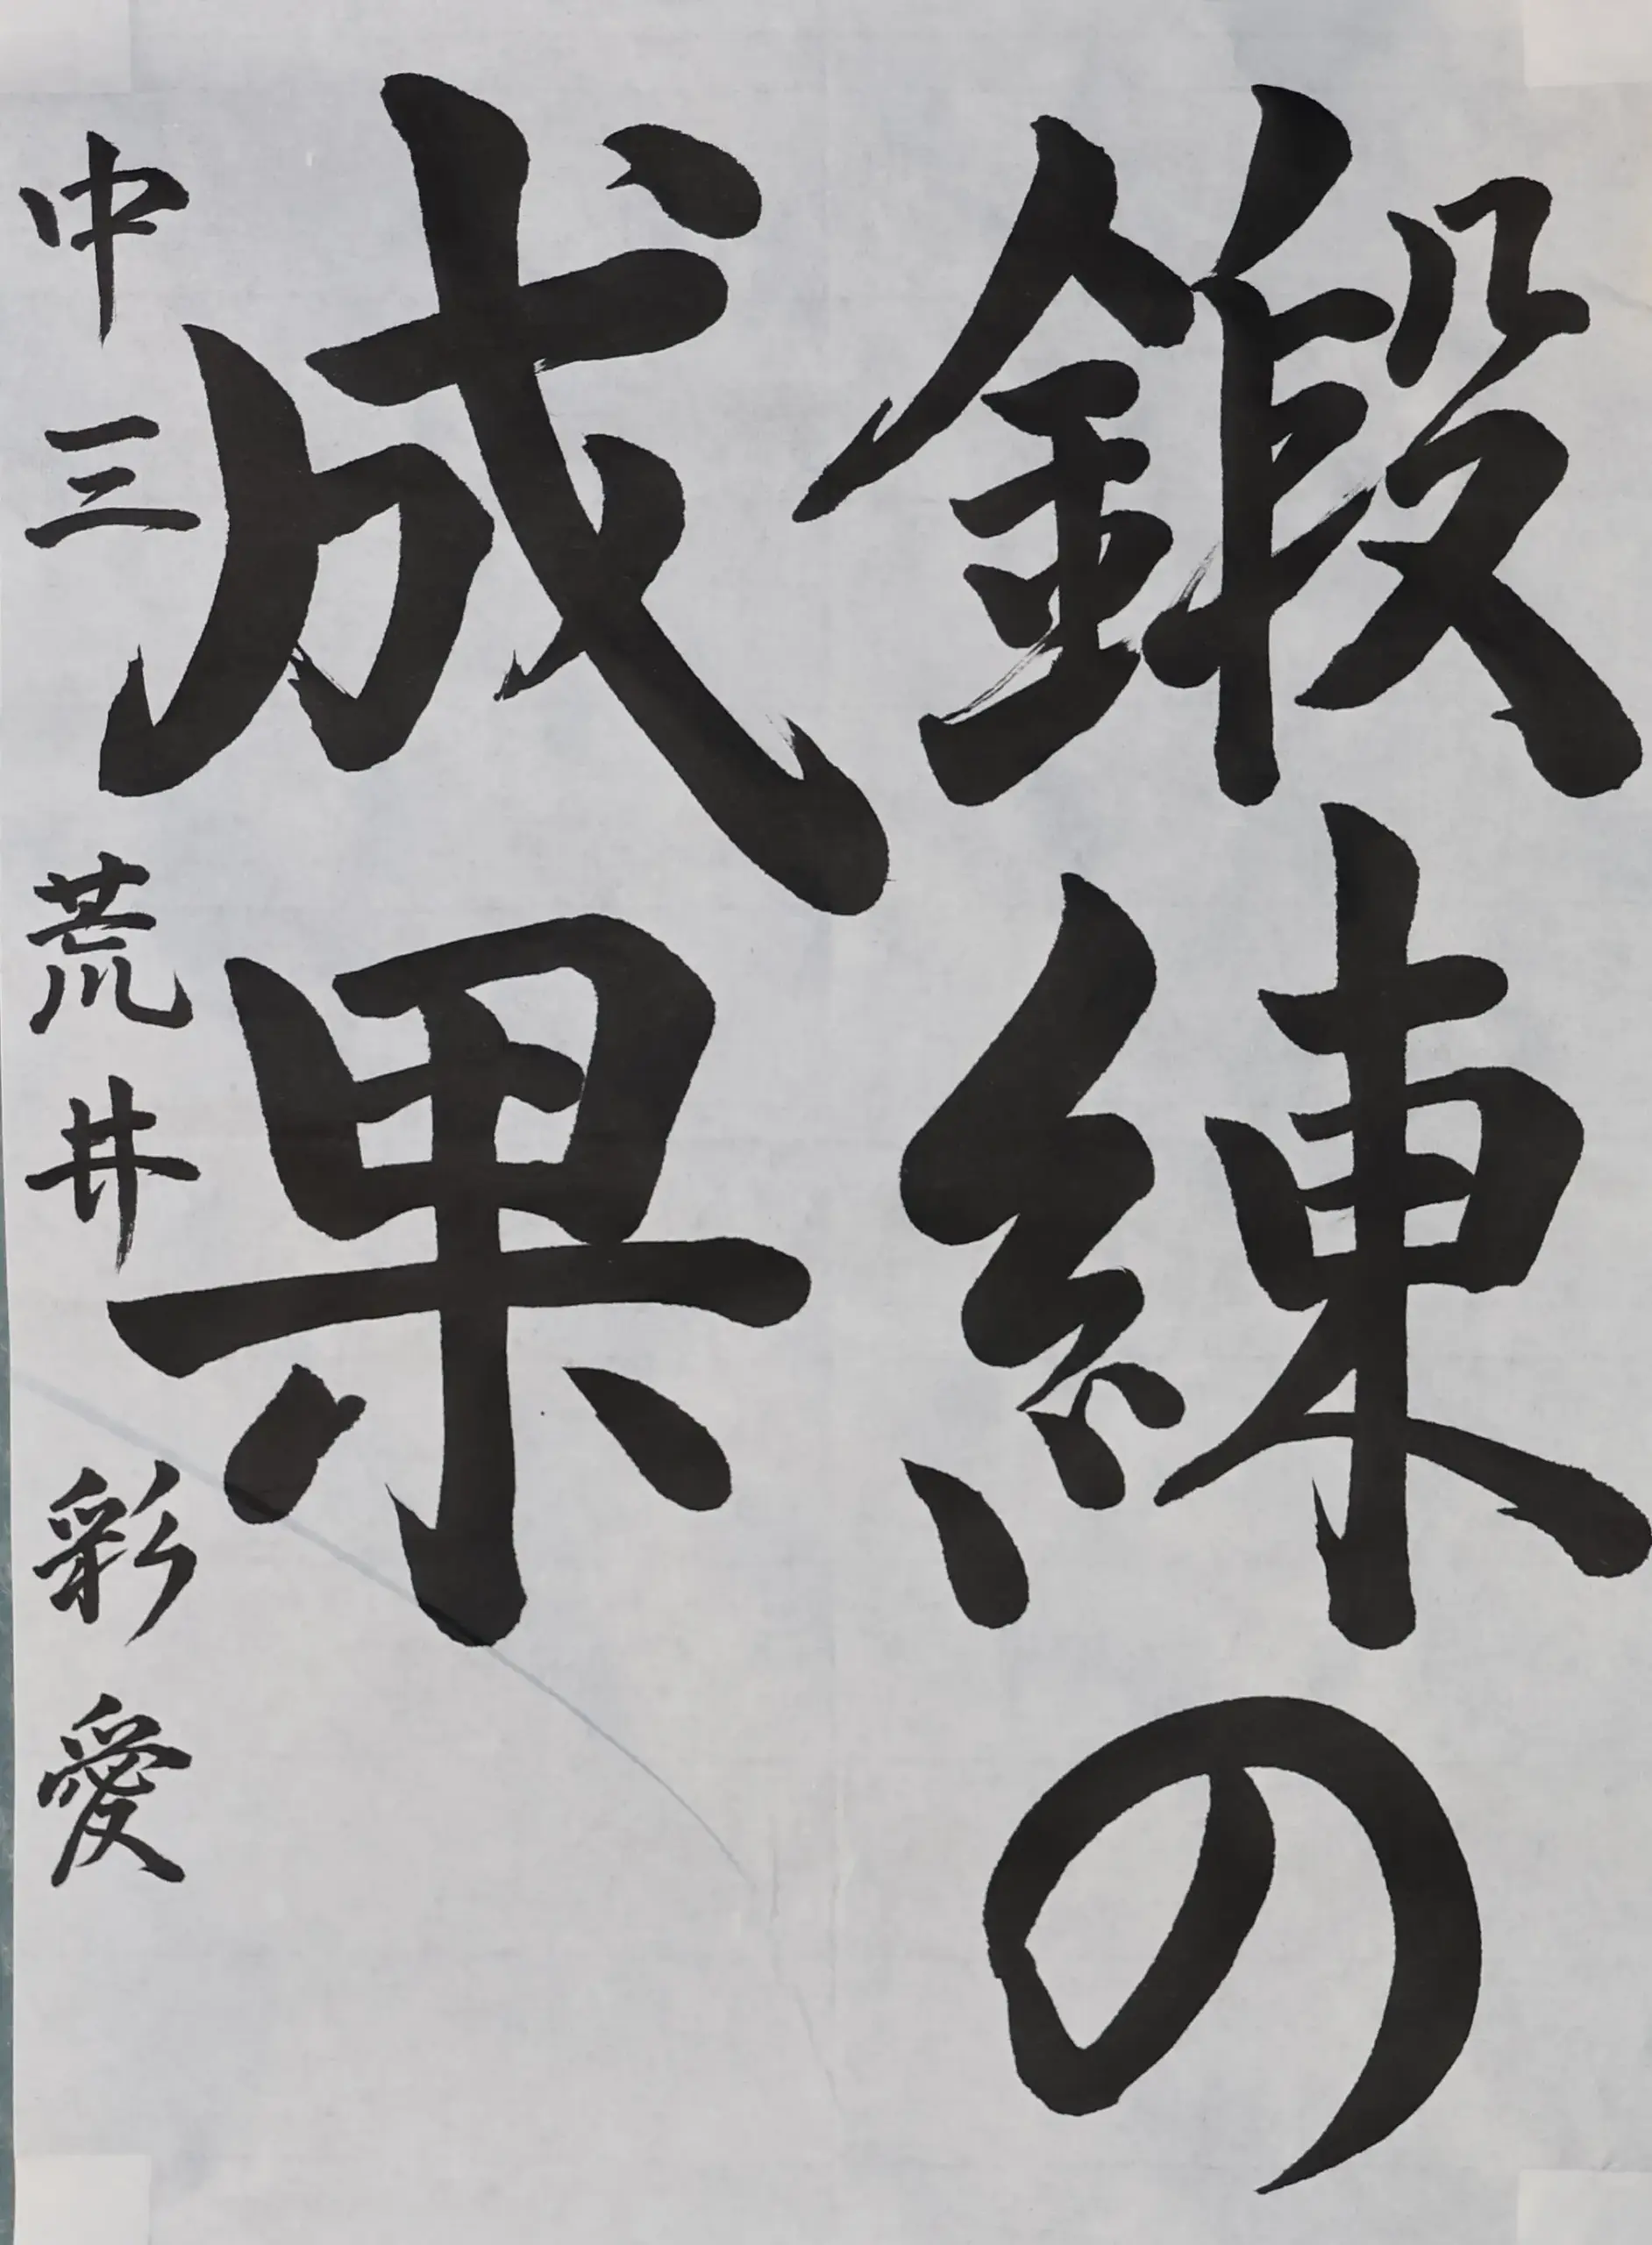 鍛練の
成果
中三 荒井 彩愛